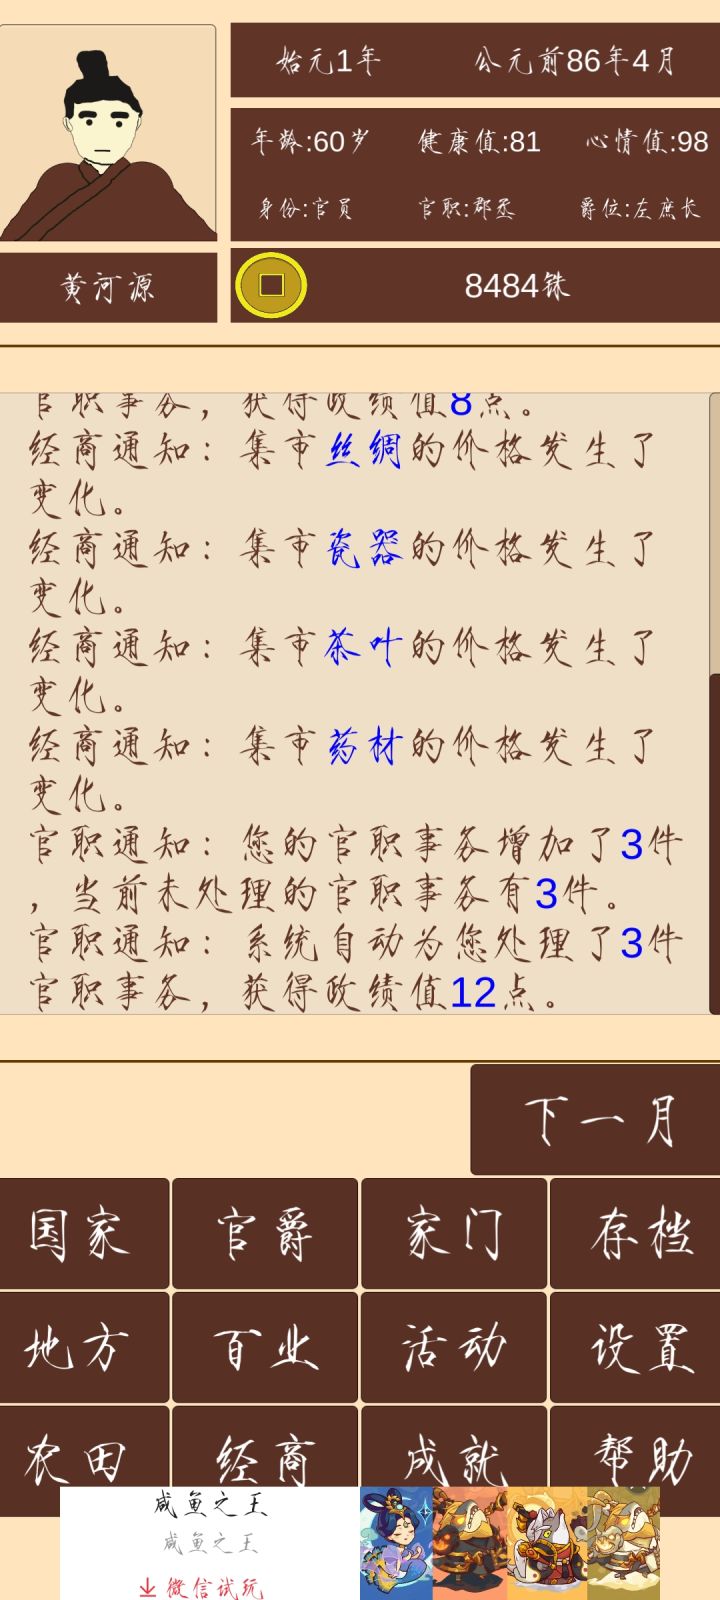 始元1年 公元前86年4月
年龄:60岁 健康值:81 心情值:98
身份:官员 官职:郡丞 爵位:左庶长
黄河源 8484铢
官职事务，获得政绩值8点。
经商通知：集市丝绸的价格发生了
变化。
经商通知：集市瓷器的价格发生了
变化。
经商通知：集市茶叶的价格发生了
变化。
经商通知：集市药材的价格发生了
变化。
官职通知：您的官职事务增加了3件
，当前未处理的官职事务有3件。
官职通知：系统自动为您处理了3件
官职事务，获得政绩值12点。
下一月
国家 官爵 家门 存档
地方 百业 活动 设置
农田 经商 成就 帮助
咸鱼之王
咸鱼之王
微信试玩